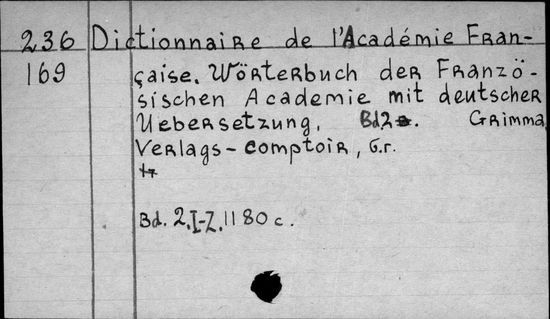 236 Dictionnaire de l'Académie Fran-
169 çaise. Wörterbuch der Franzö-
sischen Academie mit deutscher
Uebersetzung. Bd2. Grimma
Verlags-comptoir, G.r.
Bd. 2. I-Z. 1180 c.